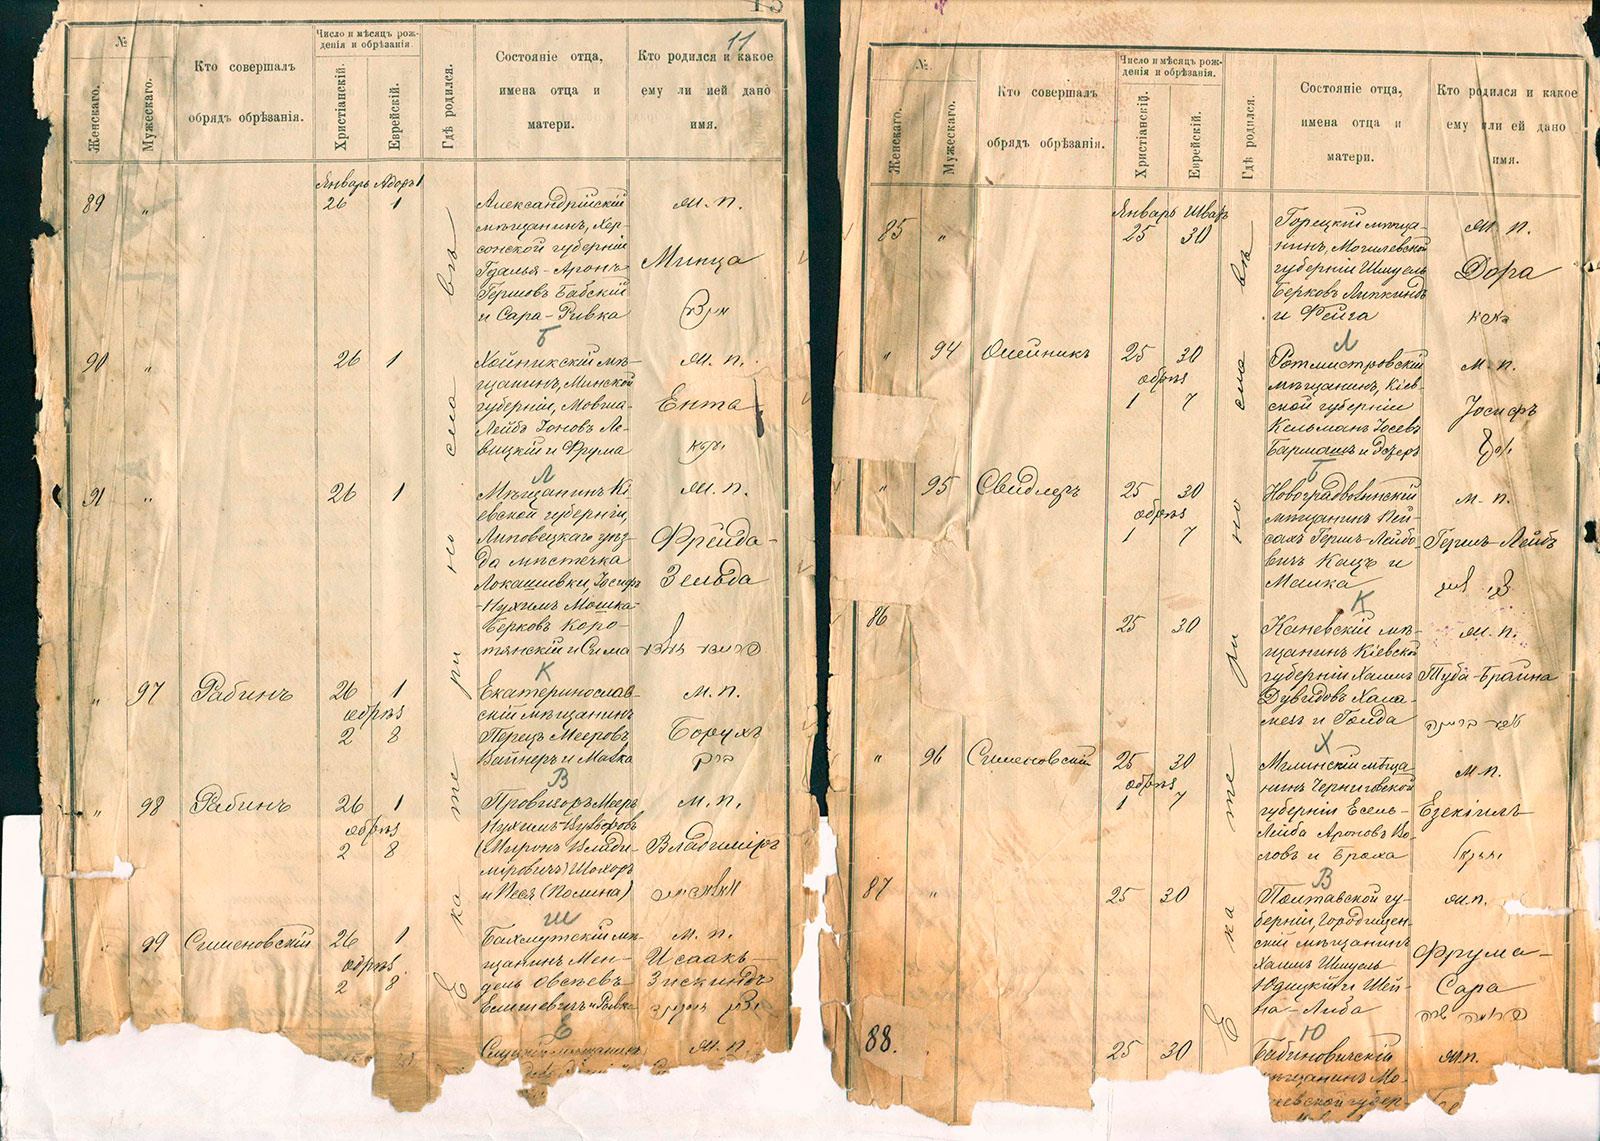 11
№
Женскаго.
Мужескаго.
Кто совершалъ
обрядъ обрѣзанія.
Число и мѣсяцъ рож-
денія и обрѣзанія.
Христіанскій.
Еврейскій.
Гдѣ родился.
Состояніе отца,
имена отца и
матери.
Кто родился и какое
ему ли ией дано
имя.
Январь
89 „ 26 1
Александрійскій
мѣщанинъ, Хер-
сонской губерніи
Гдалья-Аронъ
Гершовъ Бабскій
и Сара-Ривка
м. п.
Минца
Б
90 „ 26 1
Хойникскій мѣ-
щанинъ, Минской
губерніи, Мовша-
Лейбъ Іоновъ Ле-
вицкій и Фрума
м. п.
Ента
Л
91 „ 26 1
Мѣщанинъ Кі
евской губерніи,
Липовецкаго уѣз-
да мѣстечка
Лукашивки, Іосифъ
-Нухимъ Мошка-
Берковъ Коро-
тянскій и Сима
м. п.
Фрейда-
Зельда
К
„ 97 Рабинъ 26 1
обрѣз
2 8
Екатеринослав-
скій мѣщанинъ
Перецъ Мееровъ
Вайнеръ и Малка
м. п.
Борухъ
ברוך
В
„ 98 Рабинъ 26 1
обрѣз
2 8
Провизоръ Мееръ
Нухимъ-Вульфовъ
(Миронъ Влади-
міровичъ) Шохоръ
и Песя (Полина)
м. п.
Владиміръ
Ш
99 Сименовскій 26 1
обрѣз.
2 8
Бахмутскій мѣ-
щанинъ Мен-
дель Овсѣевъ
и Ривка
м. п.
Исаакъ-
Зискиндъ
Е
мѣщанинъ
м. п.
Екатеринославѣ
№.
Женскаго.
Мужескаго.
Кто совершалъ
обрядъ обрѣзанія.
Число и мѣсяцъ рож-
денія и обрѣзанія.
Христіанскій.
Еврейскій.
Гдѣ родился.
Состояніе отца,
имена отца и
матери.
Кто родился и какое
ему или ей дано
имя.
Январь Шватъ
85 „ 25 30
Горецкій мѣща-
нинъ, Могилевской
губерніи Шмуель
Берковъ Липкиндъ
и Фейга
м. п.
Дора
Л
„ 94 Олейникъ 25 30
обрѣз
1 7
Ротмистровскій
мѣщанинъ, Кіев-
ской губерніи
Кельманъ Іосевъ
Бармашъ и Эстеръ
м. п.
Іосифъ
Б
„ 95 Свидлеръ 25 30
обрѣз
1 7
Новоградволынскій
мѣщанинъ Пей-
сахъ Гершъ-Лейбо-
вичъ Кацъ и
Малка
м. п.
Гершъ-Лейбъ
К
86 25 30
Каневскій мѣ-
щанинъ Кіевской
губерніи Хаимъ
Дувидовъ Хала-
и Голда
м. п.
Туба-Брайна
Х
„ 96 Сименовскій 25 30
обрѣз
1 7
Мглинскій мѣща-
нинъ Черниговской
губерніи Есель-
Лейба Ароновъ Во-
ловъ и Браха
м. п.
Езекіиль
В
87 „ 25 30
Полтавской гу-
берніи, Городищен-
скій мѣщанинъ
Хаимъ Шмуель
Юдицкій и Шей-
на-Либа
м. п.
Фрума-
Сара
Ю
88. 25 30
Бабиновичскій
мѣщанинъ Мо-
левской губер-
м. п.
Екатеринославѣ